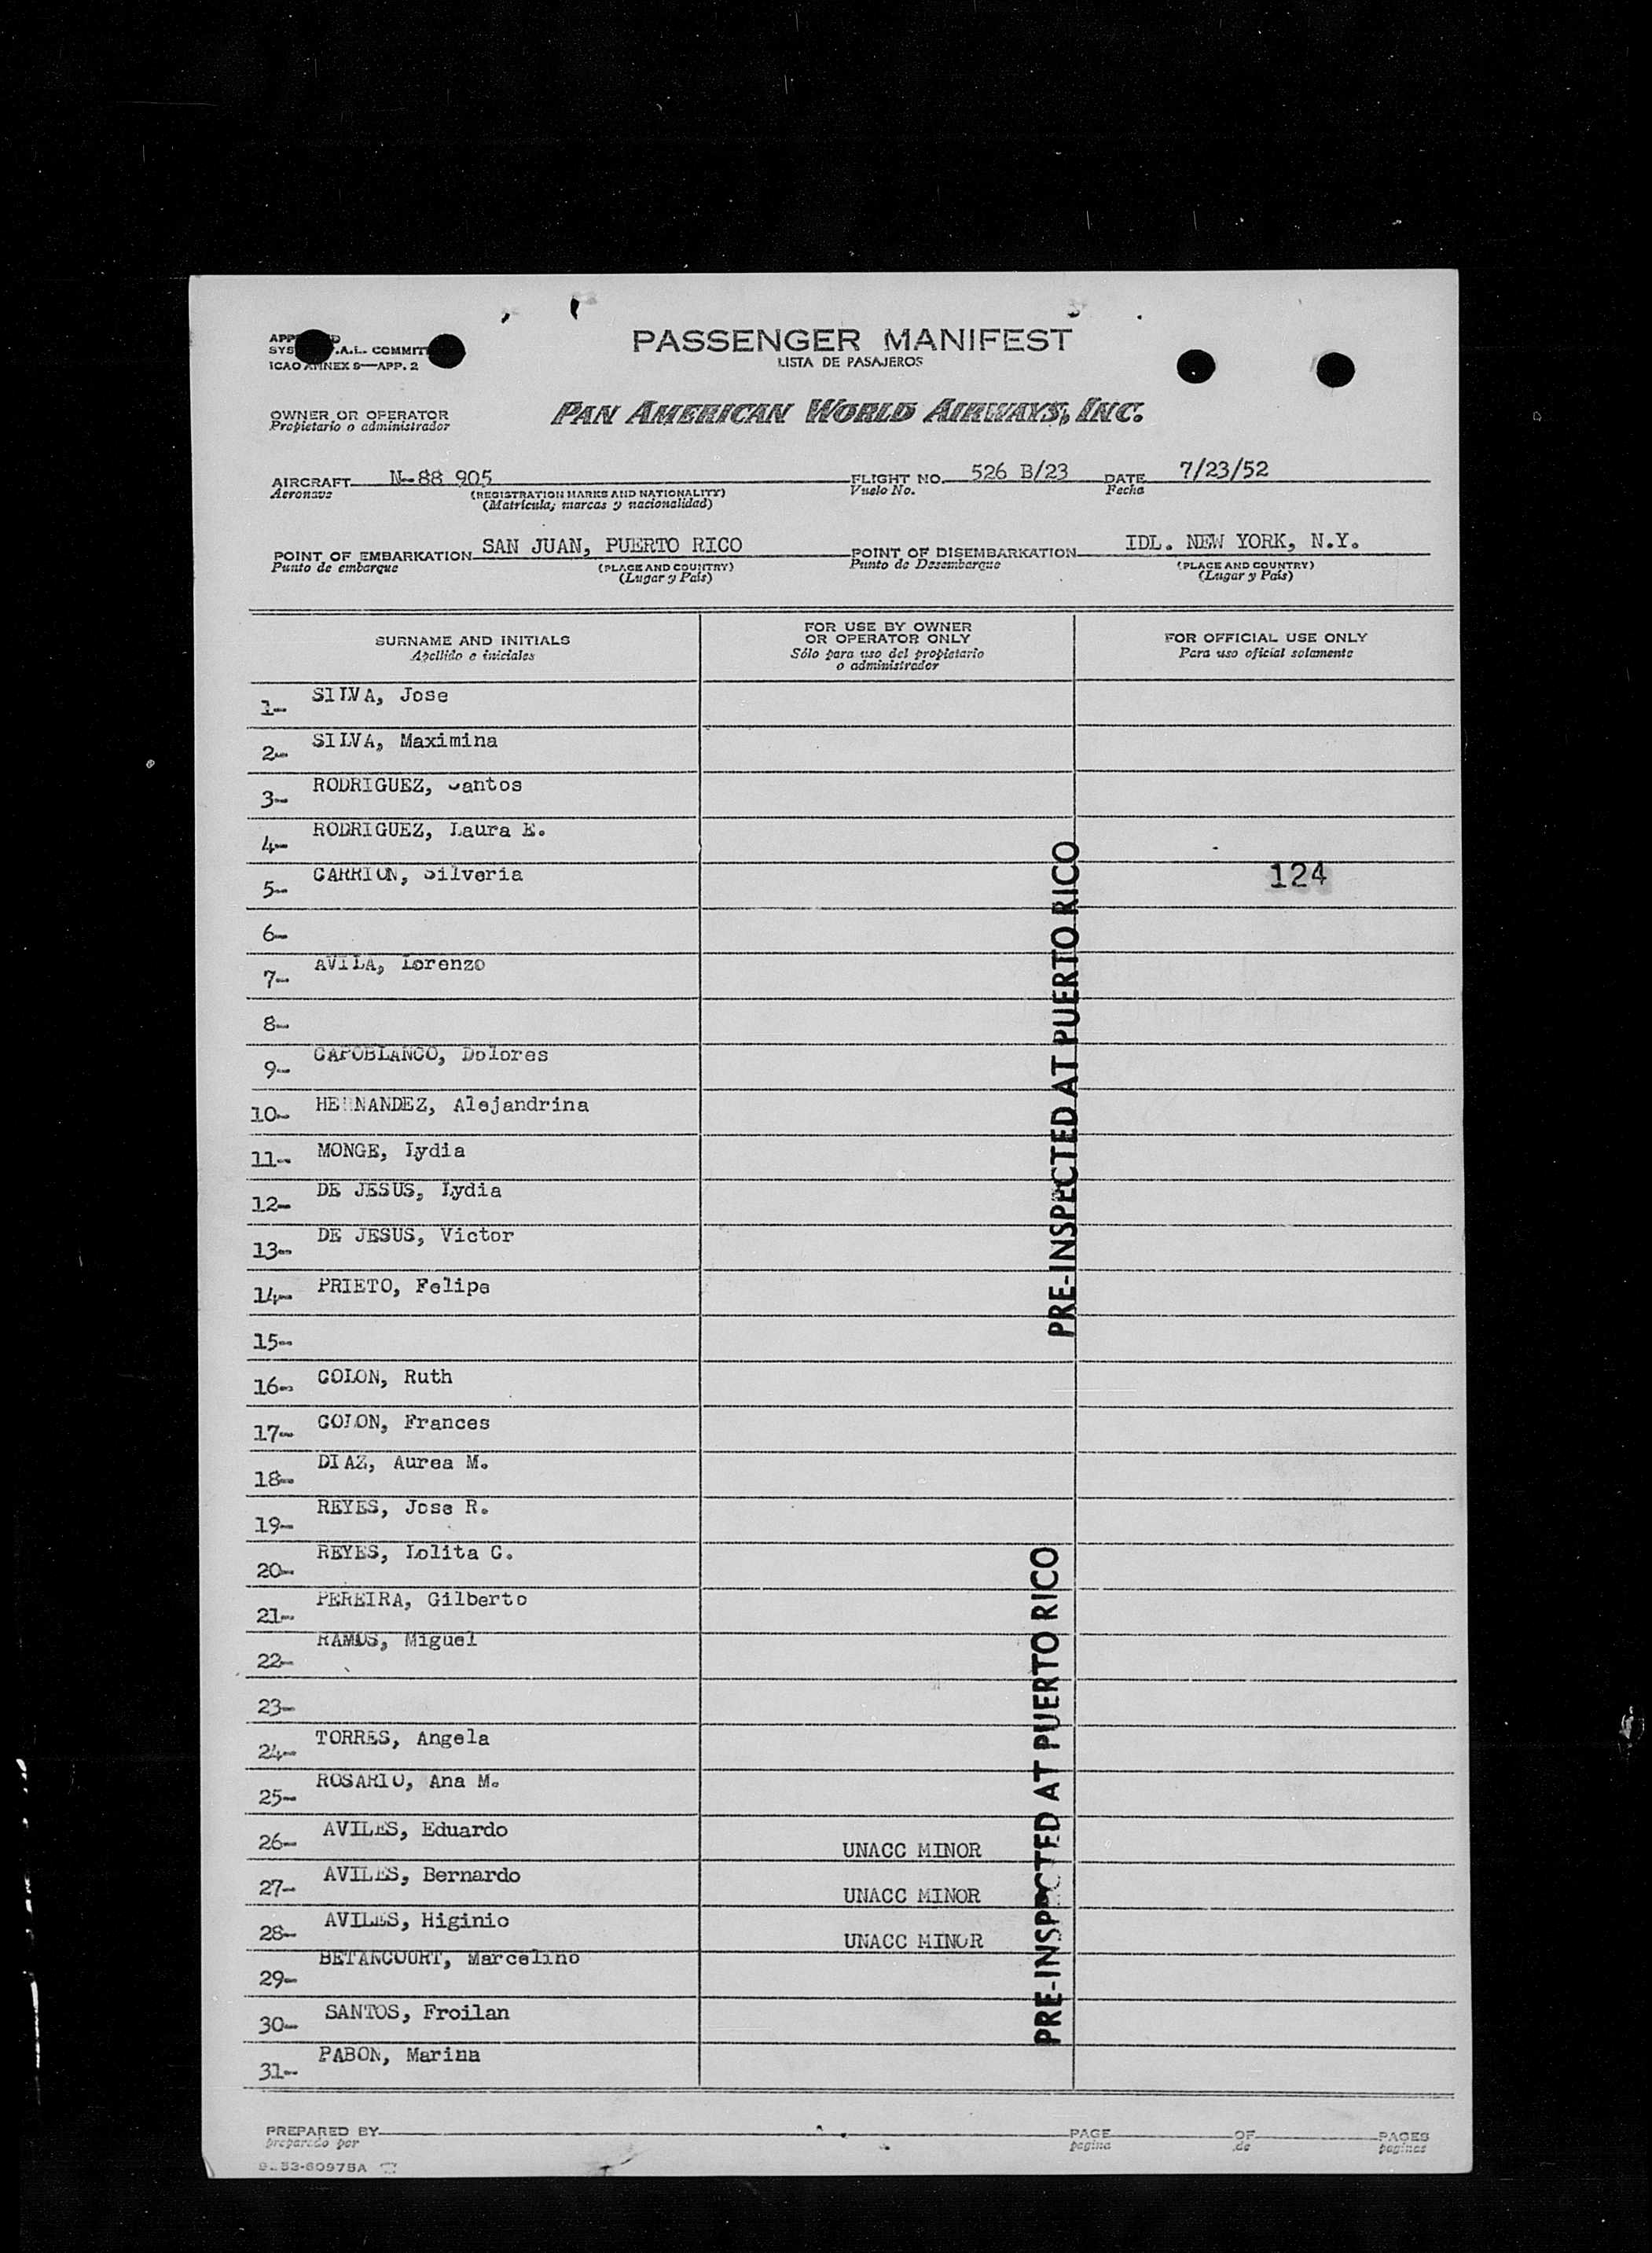 PASSENGER MANIFEST
LISTA DE PASAJEROS
ICAO ANNEX 9—APP. 2
OWNER OR OPERATOR
Propietario o administrador
PAN AMERICAN WORLD AIRWAYS, INC.
AIRCRAFT N-88 905 FLIGHT NO. 526 B/23 DATE 7/23/52
Aeronave (REGISTRATION MARKS AND NATIONALITY) Vuelo No. Fecha
(Matrícula, marcas y nacionalidad)
POINT OF EMBARKATION SAN JUAN, PUERTO RICO POINT OF DISEMBARKATION IDL. NEW YORK, N.Y.
Punto de embarque (PLACE AND COUNTRY) Punto de Desembarque (PLACE AND COUNTRY)
(Lugar y País) (Lugar y País)
SURNAME AND INITIALS
Apellido e iniciales
FOR USE BY OWNER
OR OPERATOR ONLY
Sólo para uso del propietario
o administrador
FOR OFFICIAL USE ONLY
Para uso oficial solamente
1- SILVA, Jose
2- SILVA, Maximina
3- RODRIGUEZ, Santos
4- RODRIGUEZ, Laura E.
5- CARRION, Silveria 124
6-
7- AVILA, Lorenzo
8-
9- CAPOBLANCO, Dolores
10- HERNANDEZ, Alejandrina
11- MONGE, Lydia
12- DE JESUS, Lydia
13- DE JESUS, Victor
14- PRIETO, Felipe
15-
16- COLON, Ruth
17- COLON, Frances
18- DIAZ, Aurea M.
19- REYES, Jose R.
20- REYES, Lolita C.
21- PEREIRA, Gilberto
22- RAMOS, Miguel
23-
24- TORRES, Angela
25- ROSARIO, Ana M.
26- AVILES, Eduardo UNACC MINOR
27- AVILES, Bernardo UNACC MINOR
28- AVILES, Higinio UNACC MINOR
29- BETANCOURT, Marcelino
30- SANTOS, Froilan
31- PABON, Marina
PRE-INSPECTED AT PUERTO RICO
PRE-INSPECTED AT PUERTO RICO
PREPARED BY PAGE OF PAGES
preparado por pagina de paginas